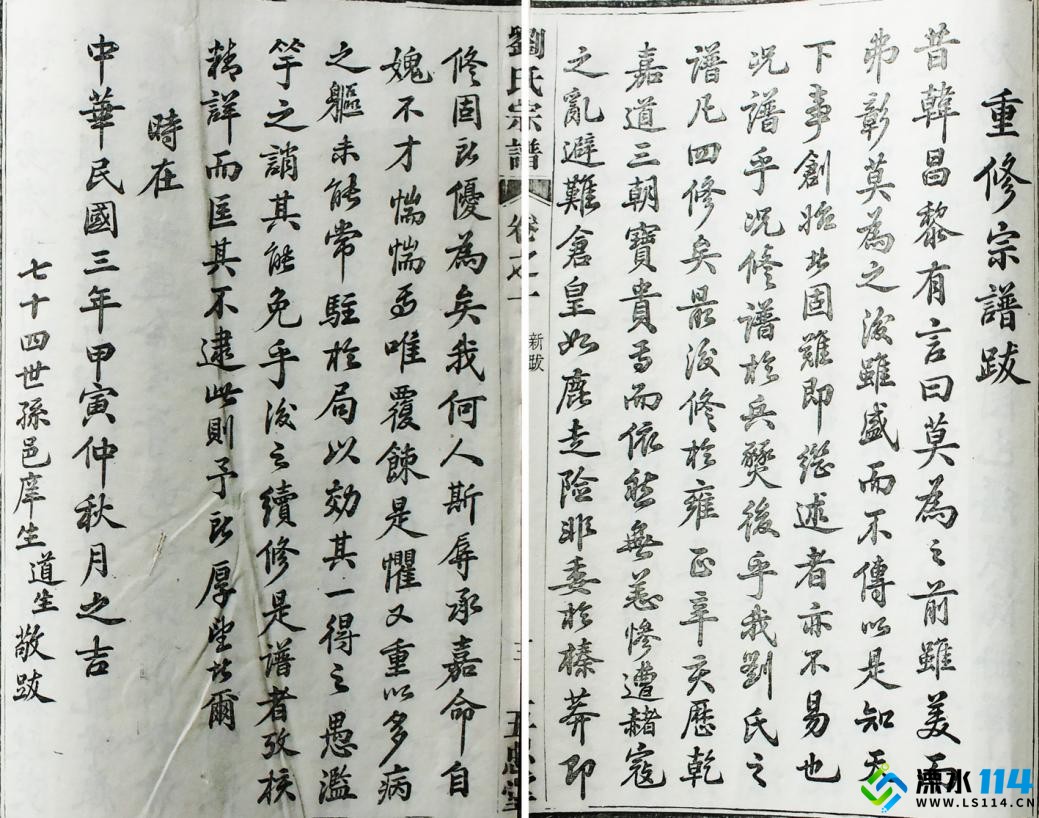 重修宗譜跋
昔韓昌黎有言曰莫為之前雖美而
弗彰莫為之後雖盛而不傳以是知天
下事創始者固難即繼述者亦不易也
況譜乎況修譜於兵燹後乎我劉氏之
譜凡四修矣最後修於雍正辛亥歷乾
嘉道三朝寶貴焉而依然無恙慘遭赭寇
之亂避難倉皇如鹿走險非委於榛莽即
劉氏宗譜
卷之一
新跋
三
修固所優為矣我何人斯辱承嘉命自
媿不才惴惴焉唯覆餗是懼又重以多病
之軀未能常駐於局以効其一得之愚濫
竽之誚其能免乎後之續修是譜者攷核
精詳而匡其不逮此則予所厚望者爾
時在
中華民國三年甲寅仲秋月之吉
七十四世孫邑庠生道生敬跋
溧水114
WWW.LS114.CN